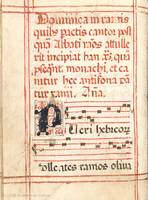 Dominica in ramis
quibus pactis cantor post
quā Abbati rāos attule
rit incipiat han
monachi, et ca
nitur hec antifona da
tur rami. Aña.
Pueri hebreor
tolletes ramos oliua